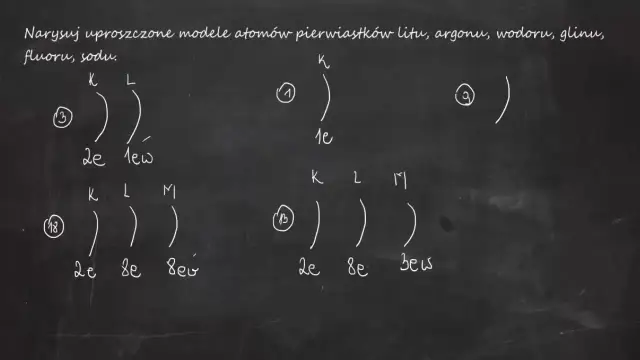 Narysuj uproszczone modele atomów pierwiastków litu, argonu, wodoru, glinu,
fluoru, sodu.
K L
3
2e 1eẃ
K
1
1e
9
K L M
18
2e 8e 8eẃ
K L M
13
2e 8e 3ew